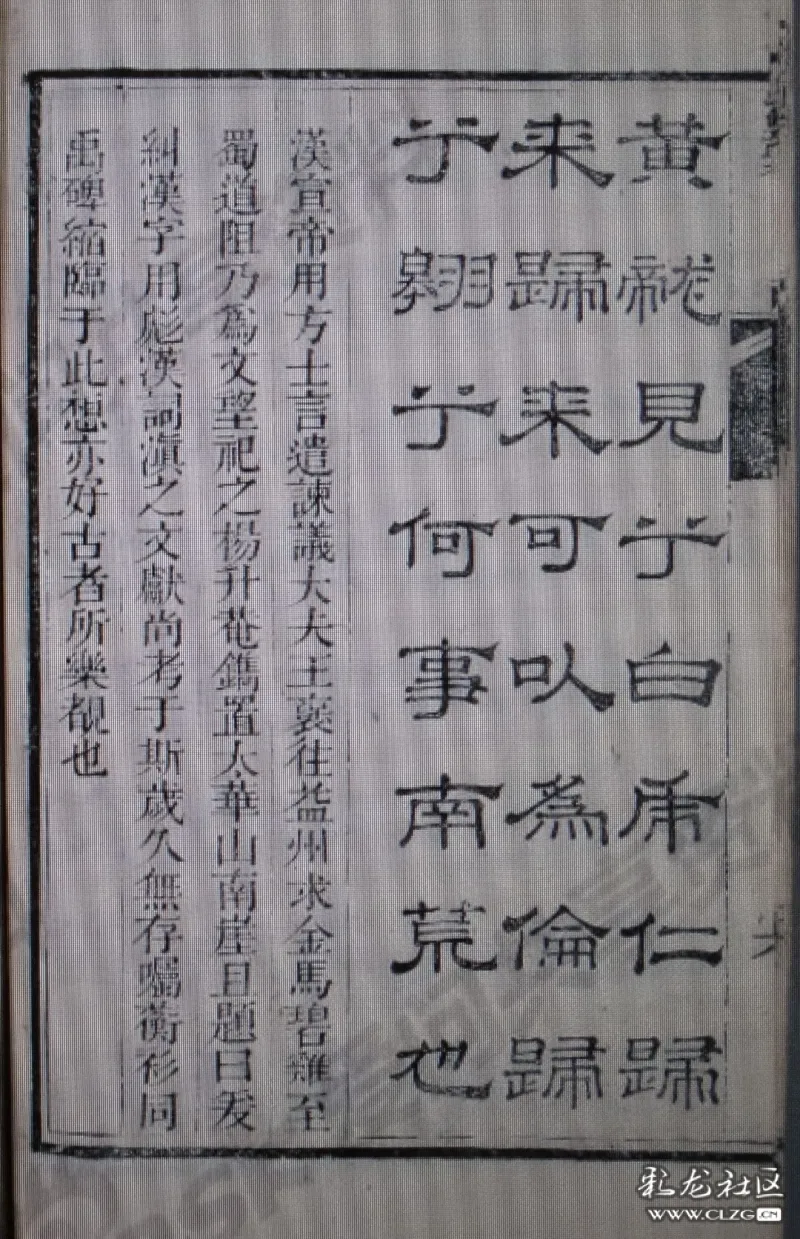 黃龍見兮白虎仁歸
来歸来可以為倫歸
兮翱兮何事南荒也
漢宣帝用方士言遣諫議大夫王褒往益州求金馬碧雞至
蜀道阻乃爲文望祀之楊升菴鐫置太華山南崖且題曰爰
糾漢字用彪漢詞滇之文獻尚考于斯歲久無存囑蘅衫同
禹碑縮臨于此想亦好古者所樂覩也
彩龙社区
WWW.CLZG.CN